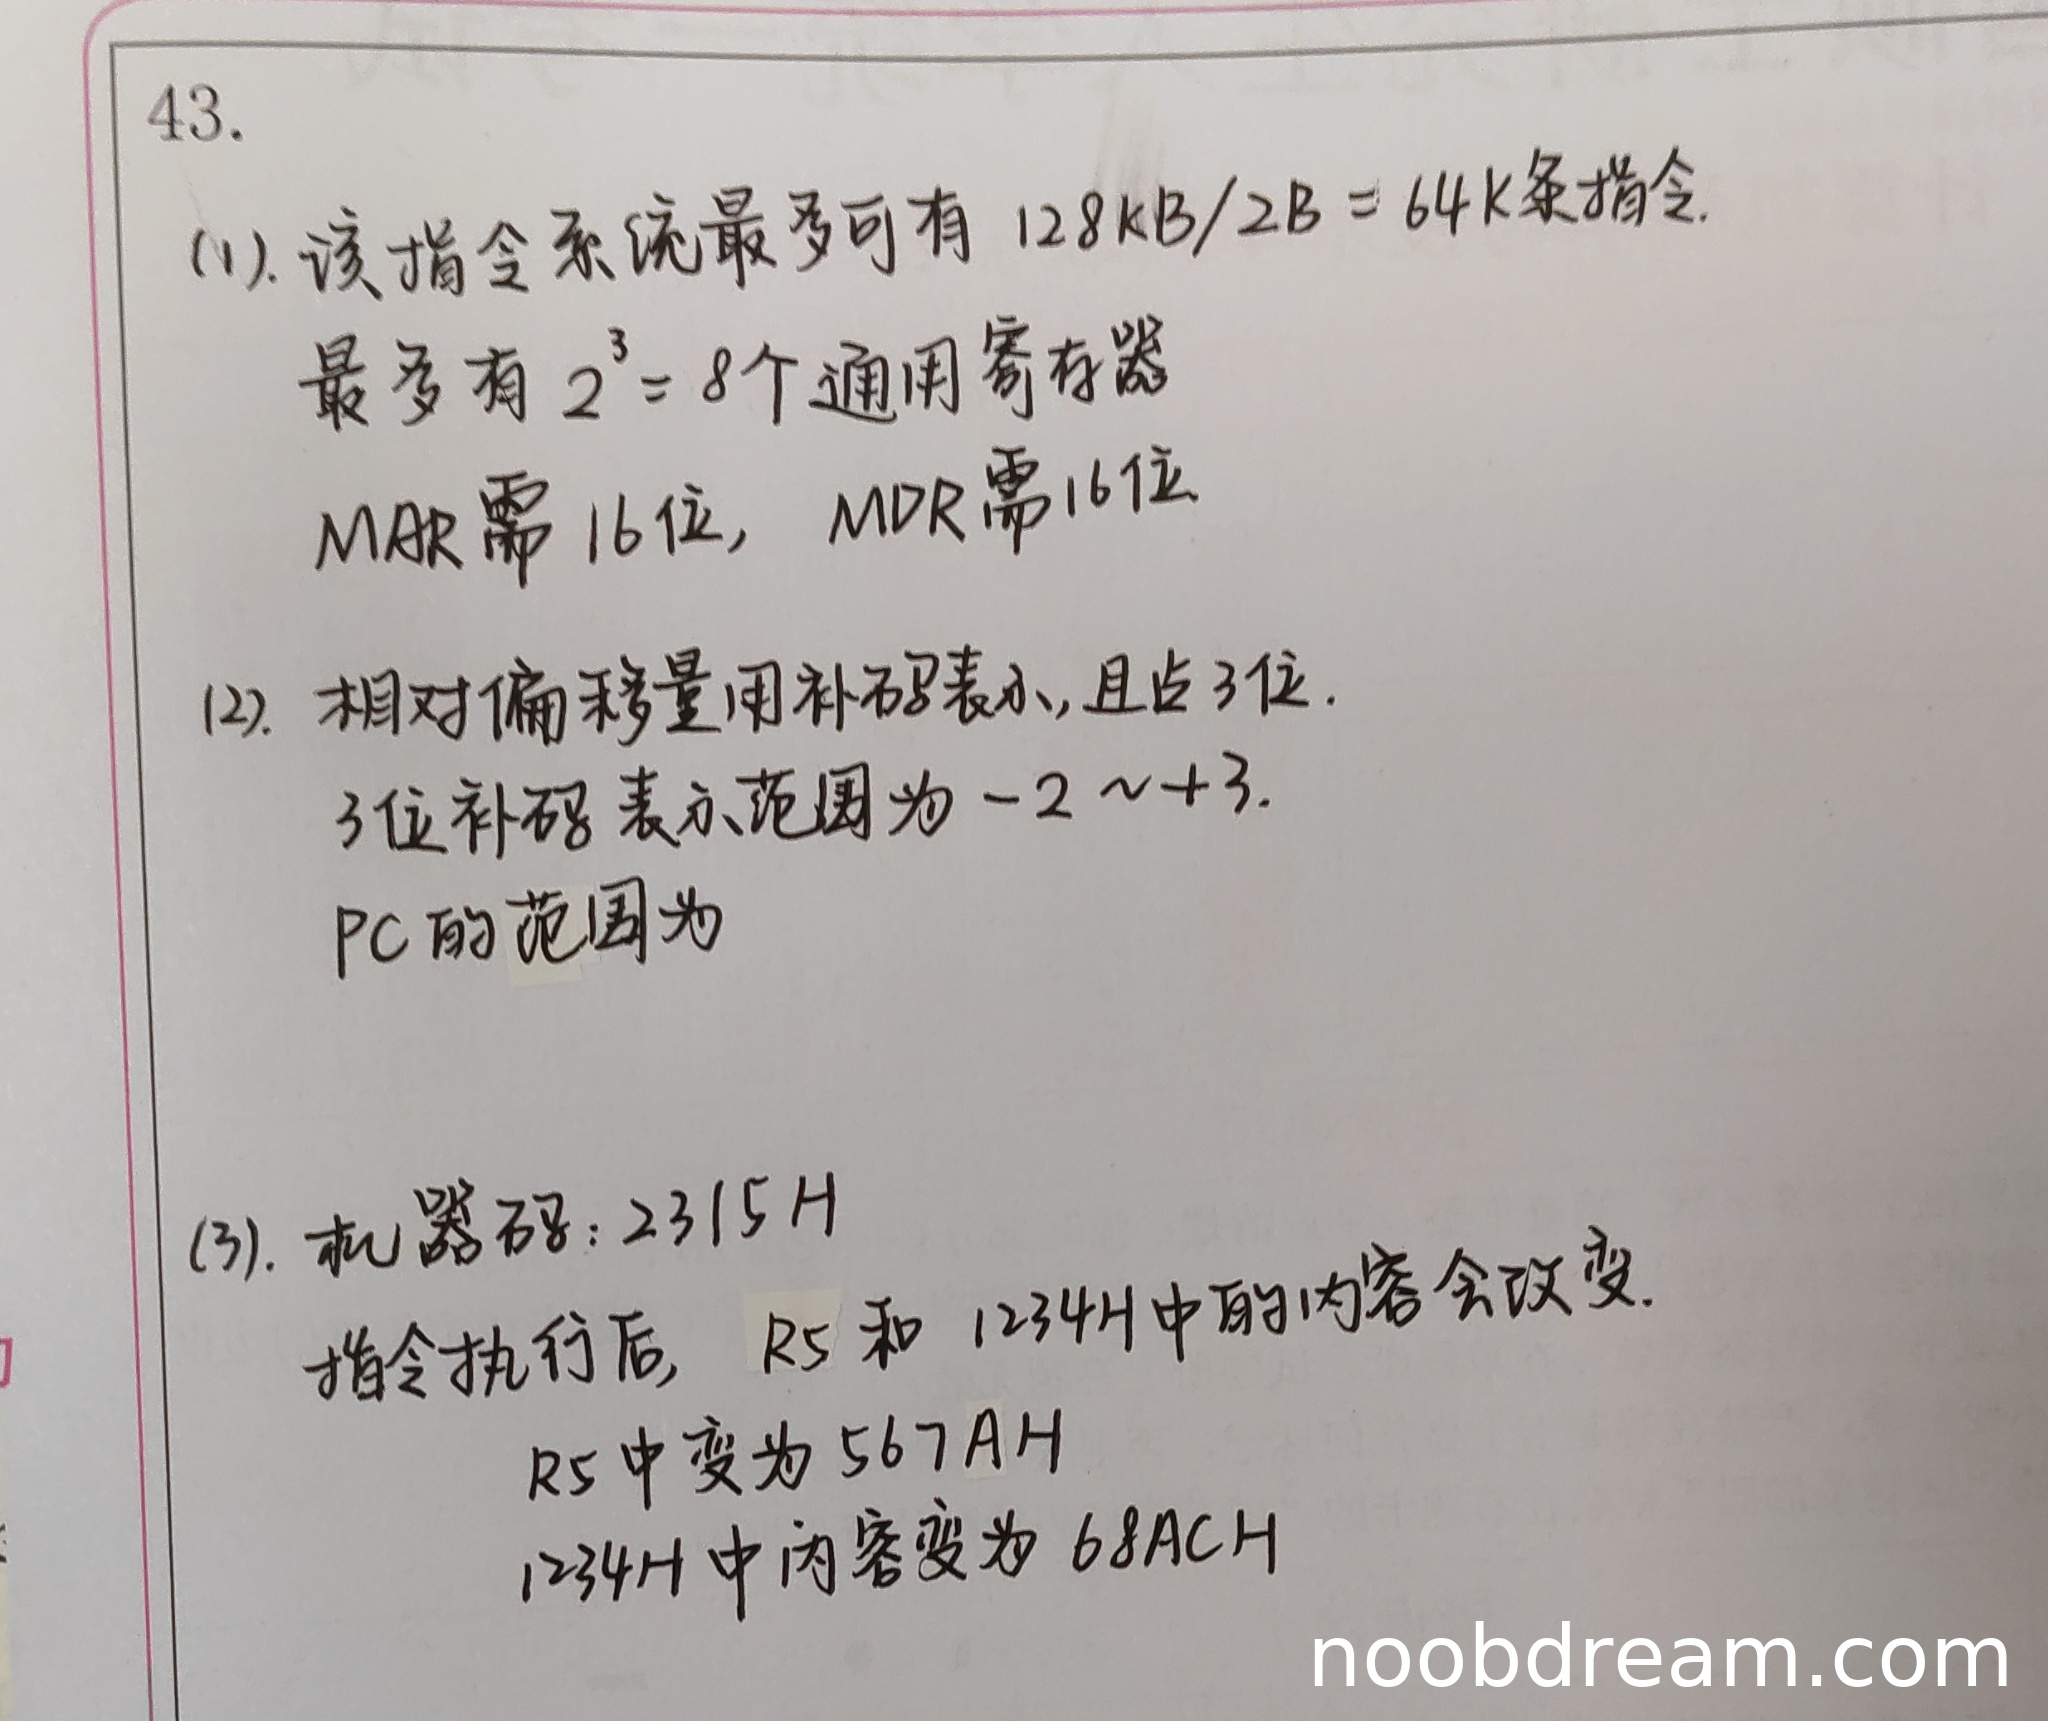 43.
(1). 该指令系统最多可有 128KB/2B = 64K条指令.
最多有 2³ = 8个通用寄存器
MAR需 16位, MDR需16位
(2). 相对偏移量用补码表示, 且占3位.
3位补码表示范围为 -2 ~ +3.
PC的范围为
(3). 机器码: 2315H
指令执行后, R5 和 1234H中的内容会改变.
R5中变为 567AH
1234H中内容变为 68ACH
noobdream.com